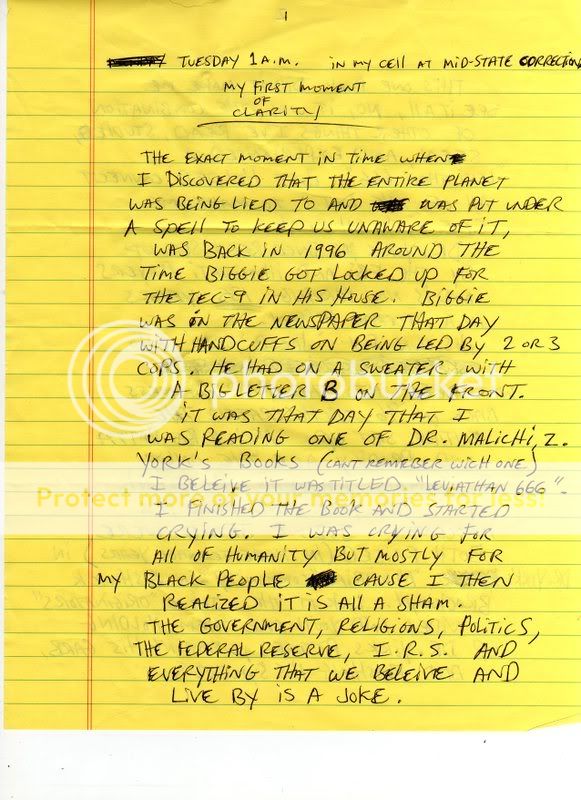 1
TUESDAY 1 A.M. IN MY CELL AT MID-STATE CORRECTION
MY FIRST MOMENT
OF
CLARITY
THE EXACT MOMENT IN TIME WHEN
I DISCOVERED THAT THE ENTIRE PLANET
WAS BEING LIED TO AND WAS PUT UNDER
A SPELL TO KEEP US UNAWARE OF IT,
WAS BACK IN 1996 AROUND THE
TIME BIGGIE GOT LOCKED UP FOR
THE TEC-9 IN HIS HOUSE. BIGGIE
WAS ON THE NEWSPAPER THAT DAY
WITH HANDCUFFS ON BEING LED BY 2 OR 3
COPS. HE HAD ON A SWEATER WITH
A BIG LETTER B ON THE FRONT.
IT WAS THAT DAY THAT I
WAS READING ONE OF DR. MALICHI Z.
YORK'S BOOKS (CANT REMEBER WICH ONE)
I BELEIVE IT WAS TITLED. "LEVIATHAN 666".
Protect more of your memories for less!
I FINISHED THE BOOK AND STARTED
CRYING. I WAS CRYING FOR
ALL OF HUMANITY BUT MOSTLY FOR
MY BLACK PEOPLE CAUSE I THEN
REALIZED IT IS ALL A SHAM.
THE GOVERNMENT, RELIGIONS, POLITICS,
THE FEDERAL RESERVE, I.R.S. AND
EVERYTHING THAT WE BELEIVE AND
LIVE BY IS A JOKE.
photobucket